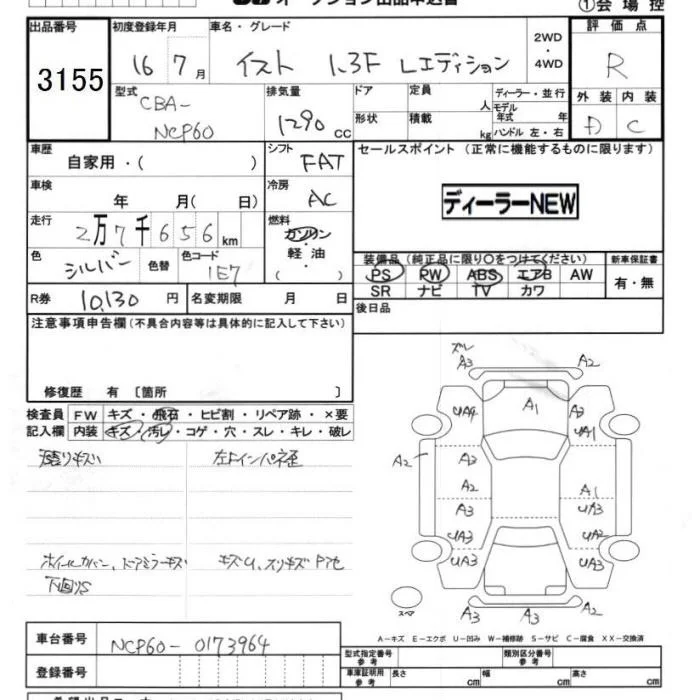 オークション出品申込書 ①会場控
出品番号 初度登録年月 車名・グレード 2WD・4WD 評価点
3155 16年7月 イスト 1.3F Lエディション R
型式 排気量 ドア 定員 人 ディーラー・並行 外装 内装
CBA-NCP60 1290cc 形状 積載 kg モデル年式 年 ハンドル 左・右 D C
車歴 シフト セールスポイント (正常に機能するものに限ります)
自家用・( ) FAT
車検 冷房 ディーラーNEW
年 月( 日) AC
走行 燃料
2万7千656km ガソリン・軽油・( )
色 色替 色コード 装備品(純正品に限り○をつけてください) 新車保証書
シルバー 1E7 PS PW ABS エアB AW 有・無
SR ナビ TV カワ
R券 10,130円 名変期限 月 日 後日品
注意事項申告欄(不具合内容等は具体的に記入して下さい)
修復歴 有 〔箇所 〕
検査員 FW キズ・飛石・ヒビ割・リペア跡・×要
記入欄 内装 キズ・汚レ・コゲ・穴・スレ・キレ・破レ
左右インパネ歪
ホイールカバー、ドアミラーキズ
下回りS
ズレ
A3 A2
UA4 A1 A3
UA1
A2 A3
A2 A1
A3 UA3
UA3 UA2
UA3 UA3
スペア A3 A3 A2
A-キズ E-エクボ U-凹み W-補修跡 S-サビ C-腐食 XX-交換済
車台番号 NCP60-0173964 型式指定番号 参考 類別区分番号 参考
登録番号 車庫証明用 参考 長さ cm 幅 cm 高さ cm